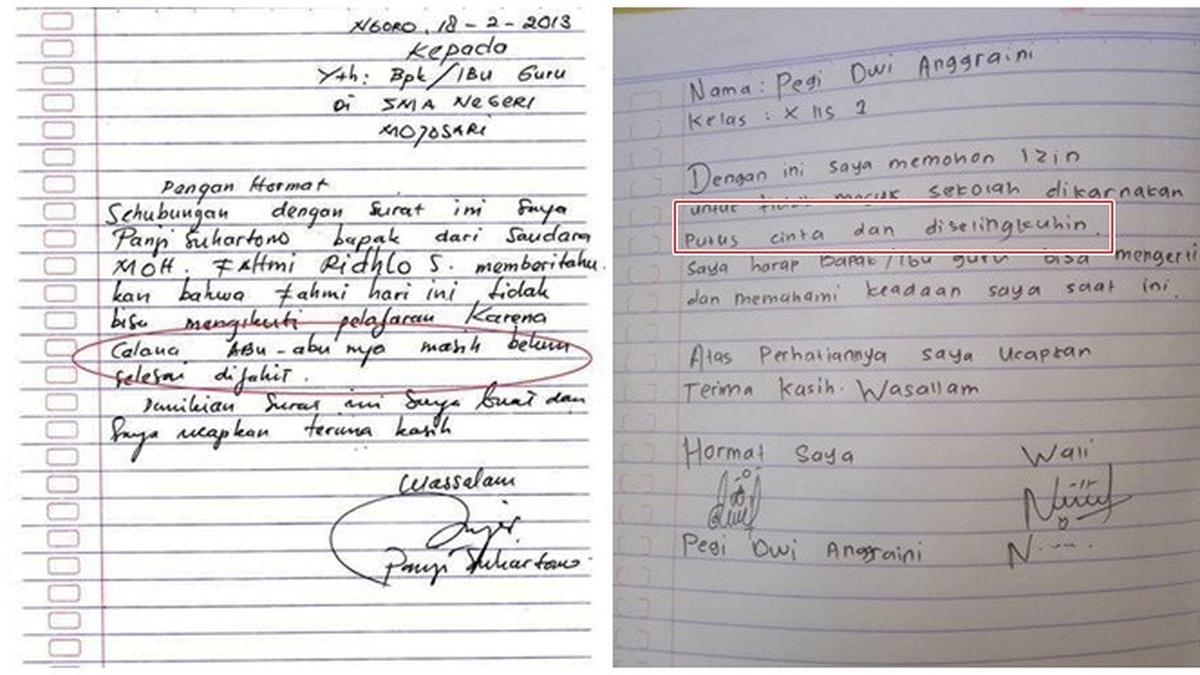 NGORO, 18-2-2013
Kepada
Yth: Bpk/IBu Guru
Di SMA NEGERI
MOJOSARI
Dengan Hormat
Sehubungan dengan surat ini saya
Panji Suhartono bapak dari Saudara
MOH. FAHmi Ridhlo S. memberitahu
kan bahwa Fahmi hari ini tidak
bisa mengikuti pelajaran Karena
Celana ABu-abu nya masih belum
selesai dijahit.
Demikian Surat ini Saya buat dan
Saya ucapkan terima kasih
Wassalam
Panji Suhartono
Nama: Pegi Dwi Anggraini
Kelas : X IIS 1
Dengan ini saya memohon Izin
untuk tidak masuk sekolah dikarnakan
Putus cinta dan diselingkuhin.
Saya harap Bapak/Ibu guru bisa mengerti
dan memahami keadaan saya saat ini.
Atas Perhatiannya saya Ucapkan
Terima kasih. Wasallam
Hormat Saya Wali
Pegi Dwi Anggraini N.....